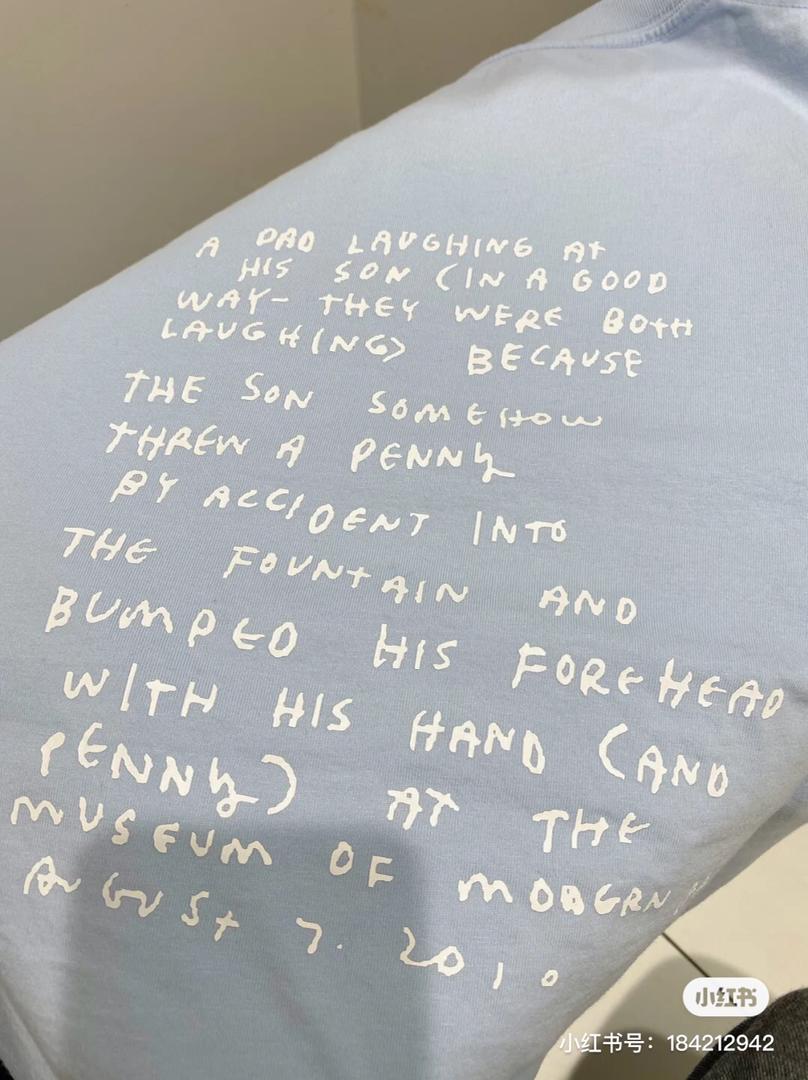 A DAD LAUGHING AT
HIS SON (IN A GOOD
WAY- THEY WERE BOTH
LAUGHING) BECAUSE
THE SON SOMEHOW
THREW A PENNY
BY ACCIDENT INTO
THE FOUNTAIN AND
BUMPED HIS FOREHEAD
WITH HIS HAND (AND
PENNY) AT THE
MUSEUM OF MODERN
AUGUST 7. 2010
小红书
小红书号: 184212942